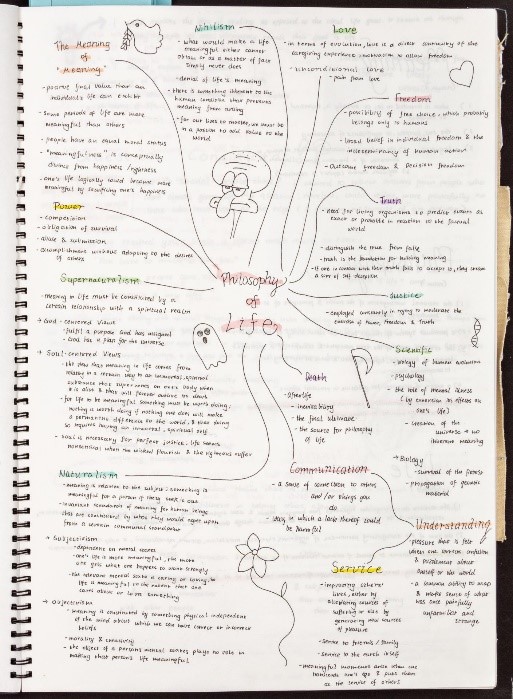 The Meaning
of
"Meaning"
- positive final value that an
individual's life can exhibit
- some periods of life are more
meaningful than others
- people have an equal moral status
- "meaningfulness" is conceptually
distinct from happiness / rightness
- one's life logically could become more
meaningful by sacrificing one's happiness
Nihilism
- what would make a life
meaningful either cannot
obtain or as a matter of fact
simply never does
- denial of life's meaning
- there is something inherent to the
human condition that prevents
meaning from arising
- for our lives to matter, we must be
in a position to add value to the
world
Love
- in terms of evolution, love is a direct
caregiving experience : motivation to allow freedom
- unconditional love
- pain from love
Freedom
- possibility of free choice, which probably
belongs only to humans
- used belief in individual freedom & the
indeterminancy of human action
- outcome freedom & decision freedom
Truth
- need for living organisms to predict
exact or probable in reaction to the
world
- distinguish the true from false
- truth is the foundation for building meaning
- if one in contact with their truth fails to accept it, they
a sort of self deception
Power
- competition
- obligation of survival
- abide & submission
- accomplishment without adopting to the desires
of others
Supernaturalism
- meaning in life must be constituted by a
certain relationship with a spiritual realm
→ God-centered views
- fulfil a purpose God has assigned
- God has a plan for the universe
→ Soul-centered views
- meaning in life comes from
in a certain way to an immortal, spiritual
substance that supervenes on one's body when
it is alive & that will forever outlive its death
- for life to be meaningful something must be worth doing,
nothing is worth doing if nothing one does will make
a permanent difference to the world, & thus doing
so requires having an immortal, spiritual self
- soul is necessary for perfect justice; life seems
nonsensical when the wicked flourish & the righteous suffer
Philosophy
of
Life
Justice
- employed constantly in trying to moderate the
exercise of power, freedom & truth
Scientific
- biology of human evolution
- psychology
- the role of mental illness
(by connection its effects on
one's life)
- creation of the
universe → no
inherent meaning
→ Biology
- survival of the fittest
- propagation of genetic
material
Death
- afterlife
- inevitability
- the final deliverance
- the source for philosophy
of life
Naturalism
- meaning is relative to the subject; something is
meaningful for a person if they seek it out
- invariant standards of meaning for human beings
that are constituted by what they would agree upon
from a certain communal standpoint
→ Subjectivism
- dependent on mental states
- one's life is more meaningful, the more
one gets what one happens to want strongly
- the relevant mental state a caring or loving, so
life is meaningful to the extent that one
cares about or loves something
→ Objectivism
- meaning is constituted by something physical independent
of the mind about which we can have correct or incorrect
beliefs
- morality & creativity
- the object of a person's mental states plays no role in
making that person's life meaningful
Communication
- a sense of connection to others
and/or things you
do
- ways in which a lack thereof could
be harmful
Understanding
- pleasure that is felt
when one corrects confusion
& puzzlement about
oneself or the world
- a human ability to map
& make sense of what
was once painfully
unfamiliar and
strange
Service
- improving others'
lives, either by
alleviating sources of
suffering or else by
generating new sources
of pleasure
- service to friends/family
- service to the earth itself
- meaningful moments arise when one
transcends one's ego & puts them
at the service of others